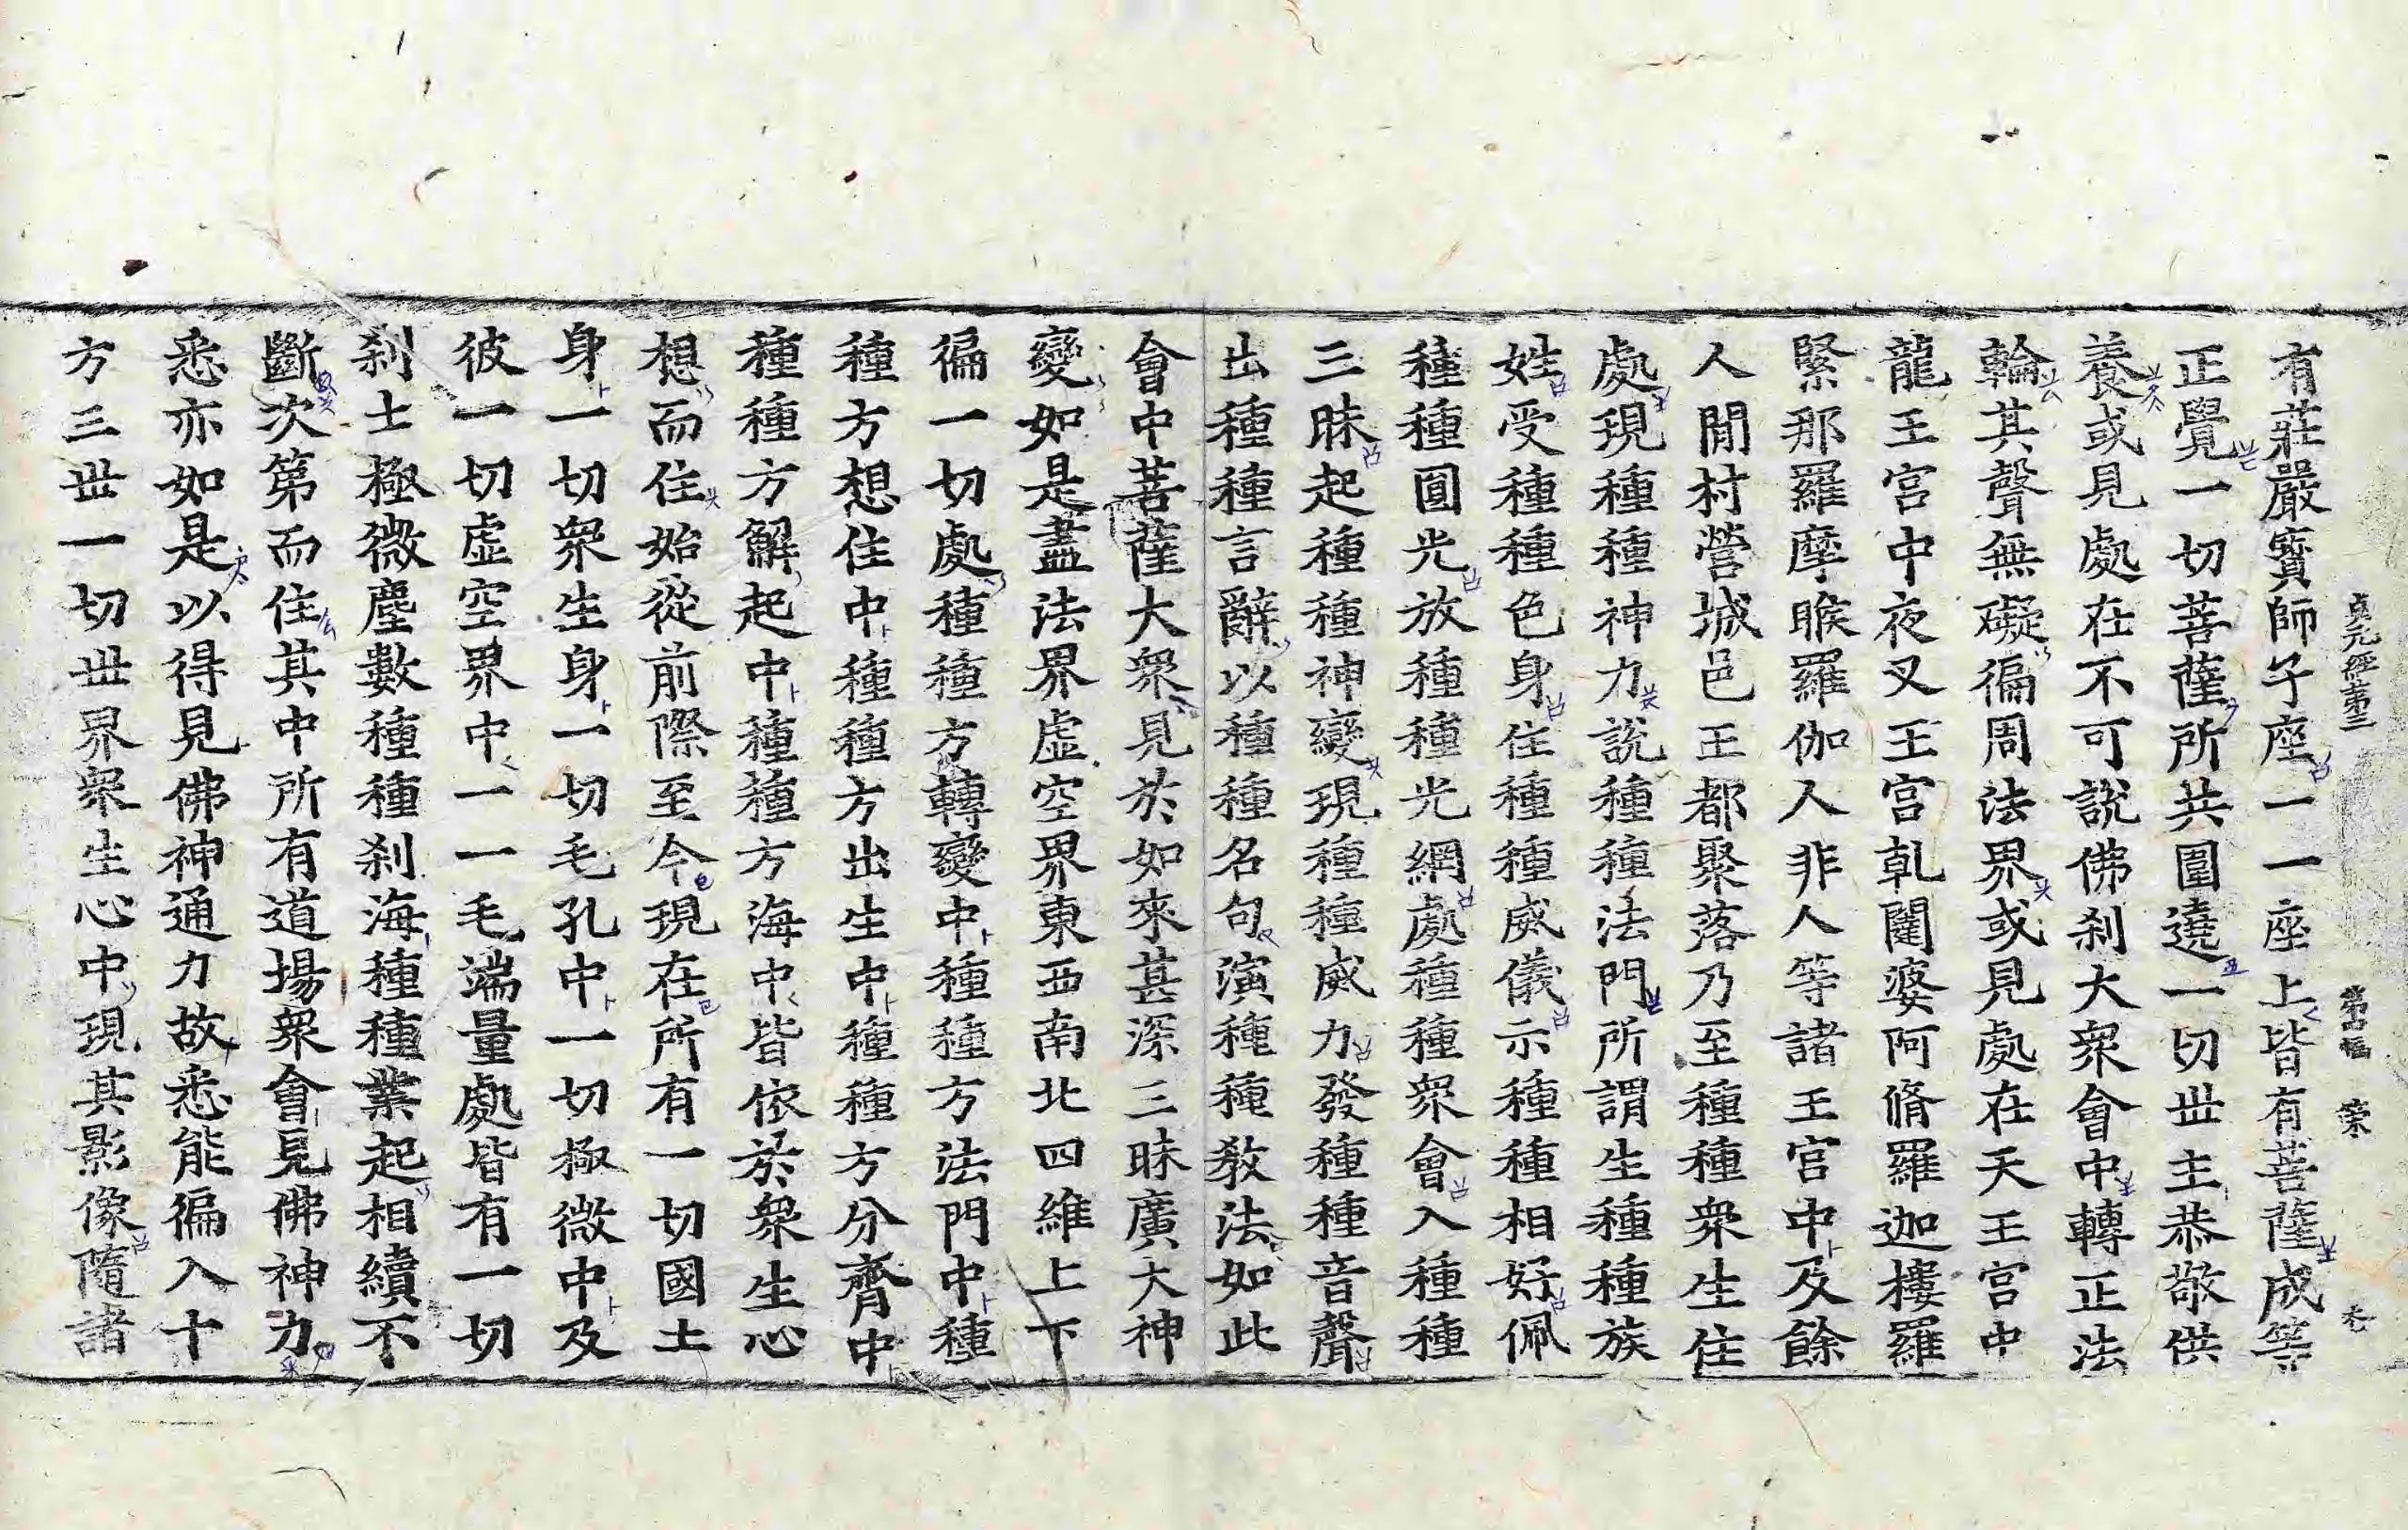 貞元經第三 第古幅 葉
有莊嚴寶師子座一一座上皆有菩薩成等
正覺一切菩薩所共圍遶一切丗主恭敬供
養或見處在不可說佛刹大衆會中轉正法
輪其聲無礙徧周法界或見處在天王宮中
龍王宮中夜叉王宮乹闥婆阿脩羅迦樓羅
緊那羅摩睺羅伽人非人等諸王宮中及餘
人閒村營城邑王都聚落乃至種種衆生住
處現種種神力說種種法門所謂生種種族
姓受種種色身住種種威儀示種種相好佩
種種圓光放種種光網處種種衆會入種種
三昧起種種神變現種種威力發種種音聲
出種種言辭以種種名句演種種教法如此
會中菩薩大衆見於如來甚深三昧廣大神
變如是盡法界虛空界東西南北四維上下
徧一切處種種方轉變中種種方法門中種
種方想住中種種方出生中種種方分齊中
種種方解起中種種方海中皆依於衆生心
想而住始從前際至今現在所有一切國土
身一切衆生身一切毛孔中一切極微中及
彼一切虛空界中一一毛端量處皆有一切
刹土極微塵數種種刹海種種業起相續不
斷次第而住其中所有道場衆會見佛神力
悉亦如是以得見佛神通力故悉能徧入十
方三丗一切丗界衆生心中現其影像隨諸